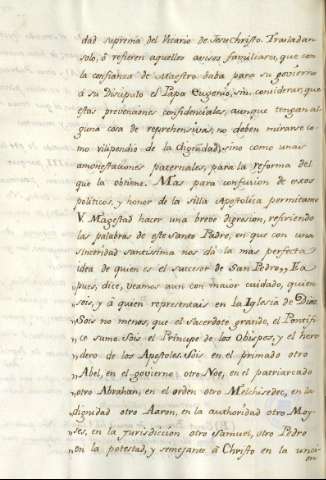 dad suprema del Vicario de Jesu Christo. Trasladan
solo, ô refieren aquellos avisos familiares, que con
la confianza de Maestro daba para su govierno
â su Discipulo el Papa Eugenio, sin considerar, que
estas prevenciones confidenciales, aunque tengan al-
guna cosa de reprehensiva, no deben mirarse co-
mo vilipendio de la dignidad, sino como unas
amonestaciones paternales, para la reforma del
que la obtiene. Mas para confusion de esos
politicos, y honor de la silla Apostolica permitame
V. Magestad hacer una breve digresion, refiriendo
las palabras de este Santo Padre, en que con una
sinceridad santissima nos dâ la mas perfecta
idea de quien es el sucesor de San Pedro,, Ea
pues, dice, veamos aun con maior cuidado, quien
sois, y â quien representais en la Iglesia de Dios.
,, Sois no menos, que el Sacerdote grande, el Pontifi-
,, ce sumo. Sois el Principe de los Obispos, y el here
,, dero de los Apostoles. Sois en el primado otro
,, Abel, en el govierno otro Noe, en el patriarcado
,, otro Abrahan, en el orden otro Melchisedec, en la
,, dignidad otro Aaron, en la authoridad otro Moy-
,, ses, en la jurisdiccion otro Samuel, otro Pedro
,, en la potestad, y semejante â Christo en la unci-
on